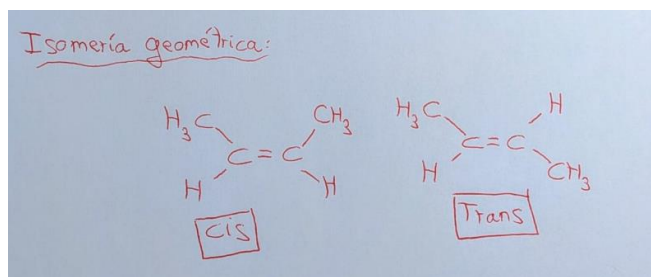 Isomería geométrica:
H3C CH3
C = C
H H
Cis
H3C H
C = C
H CH3
Trans